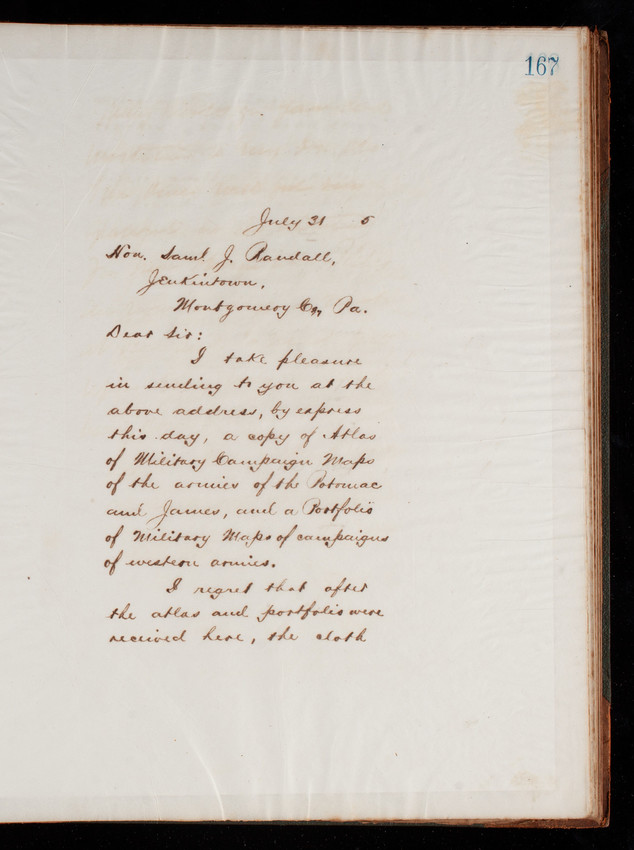 167
July 31 5
Hon. Saml. J. Randall,
Jenkintown,
Montgomery Co, Pa.
Dear Sir:
I take pleasure
in sending to you at the
above address, by express
this day, a copy of Atlas
of Military Campaign Maps
of the armies of the Potomac
and James, and a Portfolio
of Military Maps of campaigns
of western armies.
I regret that after
the atlas and portfolio were
received here, the cloth